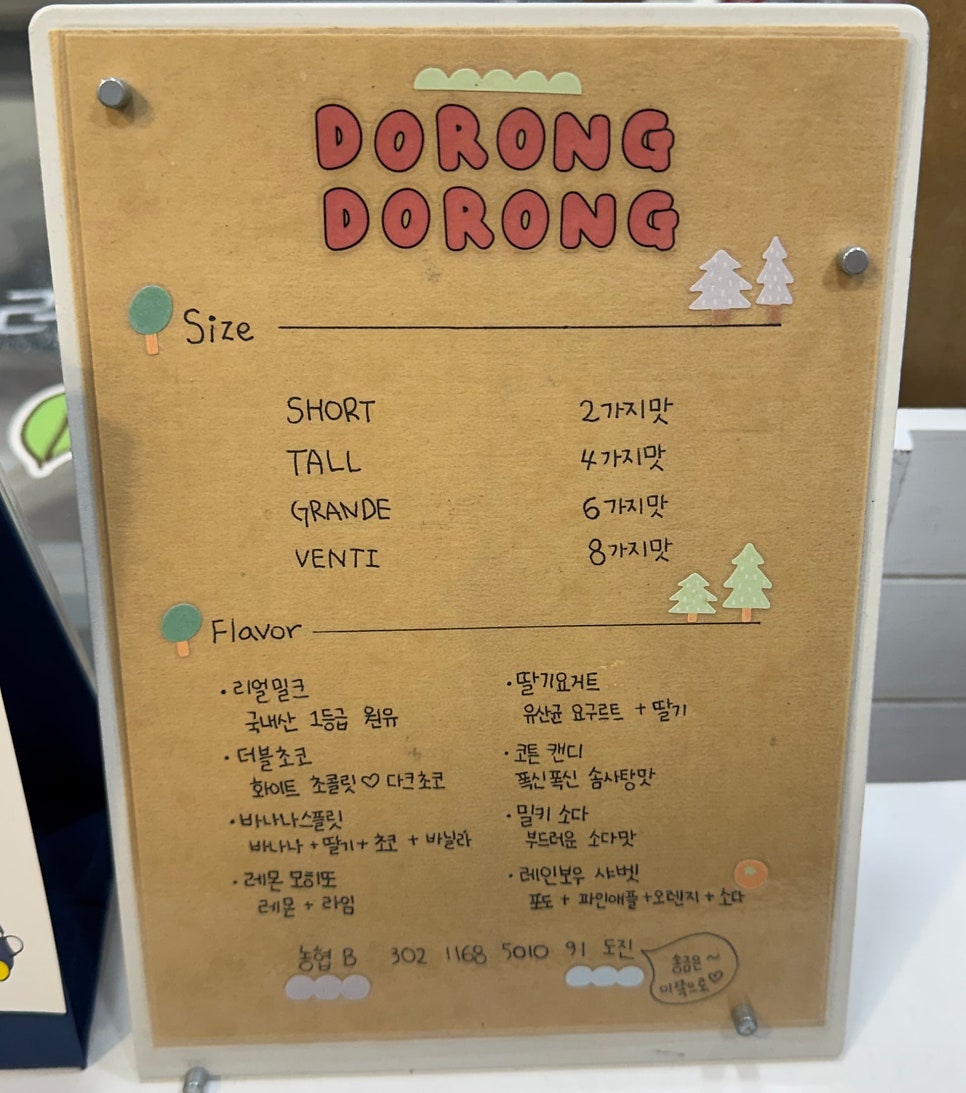 DORONG
DORONG
Size
SHORT 2가지맛
TALL 4가지맛
GRANDE 6가지맛
VENTI 8가지맛
Flavor
·리얼밀크
국내산 1등급 원유
·더블초코
화이트 초콜릿♡다크초코
·바나나스플릿
바나나+딸기+초코 + 바닐라
·레몬 모히또
레몬 + 라임
·딸기요거트
유산균 요구르트 + 딸기
·코튼 캔디
폭신폭신 솜사탕맛
·밀키 소다
부드러운 소다맛
·레인보우 샤벳
포도 + 파인애플+오렌지+소다
농협 B 302 1168 5010 91 도진
송금은~
이쪽으로♡